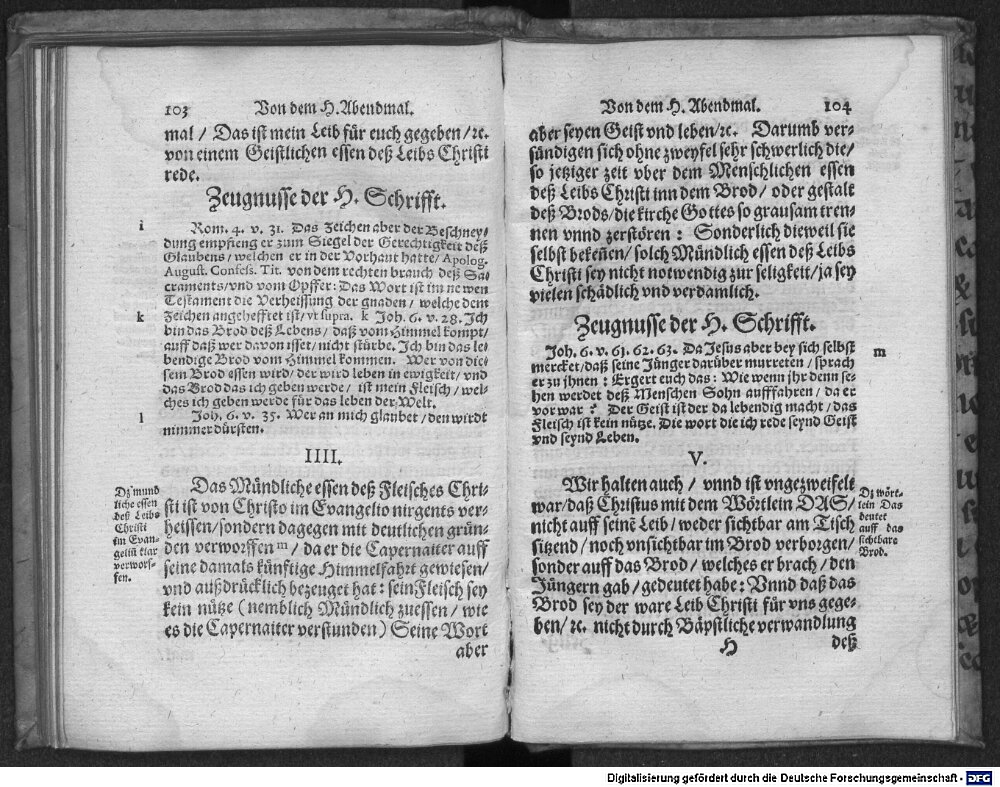 103 Von dem H. Abendmal.
mal / Das ist mein Leib für euch gegeben / ꝛc.
von einem Geistlichen essen deß Leibs Christi
rede.
Zeugnusse der H. Schrifft.
i Rom. 4. v. 31. Das Zeichen aber der Beschney-
dung empfieng er zum Siegel der Gerechtigkeit deß
Glaubens / welchen er in der Vorhaut hatte / Apolog.
August. Confess. Tit. von dem rechten brauch deß Sa-
craments / vnd vom Opffer: Das Wort ist im newen
Testament die Verheissung der gnaden / welche dem
k Zeichen angehefftet ist / vt supra. k Joh. 6. v. 28. Ich
bin das Brod deß Lebens / daß vom Himmel kompt /
auff daß wer davon isset / nicht stürbe. Ich bin das le-
bendige Brod vom Himmel kommen. Wer von die-
sem Brod essen wird / der wird leben in ewigkeit / vnd
das Brod das ich geben werde / ist mein Fleisch / wel-
ches ich geben werde für das leben der Welt.
l Joh. 6. v. 35. Wer an mich glaubet / den wirdt
nimmer dürsten.
IIII.
Das Mündliche essen deß Fleisches Chri-
sti ist von Christo im Evangelio nirgents ver-
heissen / sondern dagegen mit deutlichen grün-
den verworffen m / da er die Capernaiter auff
seine damals künfftige Himmelfahrt gewiesen /
vnd außdrücklich bezeuget hat: sein Fleisch sey
kein nütze (nemblich Mündlich zuessen / wie
es die Capernaiter verstunden) Seine Wort
aber
Dz mund
liche essen
deß Leibs
Christi
im Evan-
geliū klar
verworf-
fen.
Von dem H. Abendmal. 104
aber seyen Geist vnd leben / ꝛc. Darumb ver-
sündigen sich ohne zweyfel sehr schwerlich die /
so jetziger zeit vber dem Menschlichen essen
deß Leibs Christi inn dem Brod / oder gestalt
deß Brods / die kirche Gottes so grausam tren-
nen vnnd zerstören: Sonderlich dieweil sie
selbst bekeñen / solch Mündlich essen deß Leibs
Christi sey nicht notwendig zur seligkeit / ja sey
vielen schädlich vnd verdamlich.
Zeugnusse der H. Schrifft.
Joh. 6. v. 61. 62. 63. Da Jesus aber bey sich selbst m
mercket / daß seine Jünger darüber murreten / sprach
er zu jhnen: Ergert euch das: Wie wenn jhr denn se-
hen werdet deß Menschen Sohn aufffahren / da er
vor war? Der Geist ist der da lebendig macht / das
Fleisch ist kein nütze. Die wort die ich rede seynd Geist
vnd seynd Leben.
V.
Wir halten auch / vnnd ist vngezweifelt
war / daß Christus mit dem Wörtlein DAS /
nicht auff seinē Leib / weder sichtbar am Tisch
sitzend / noch vnsichtbar im Brod verborgen /
sonder auff das Brod / welches er brach / den
Jüngern gab / gedeutet habe: Vnnd daß das
Brod sey der ware Leib Christi für vns gege-
ben / ꝛc. nicht durch Bäpstliche verwandlung
H deß
Dz wört-
lein Das
deutet
auff das
sichtbare
Brod.
Digitalisierung gefördert durch die Deutsche Forschungsgemeinschaft - DFG